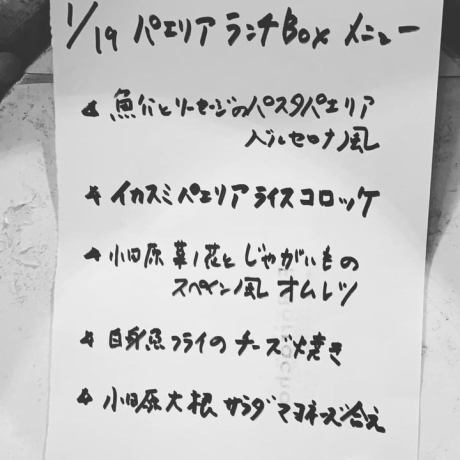 1/19 パエリア ランチBox メニュー
☆ 魚介とソーセージのパスタパエリア
バルセロナ風
☆ イカスミパエリアライスコロッケ
☆ 小田原菜の花とじゃがいもの
スペイン風 オムレツ
☆ 白身魚フライの チーズ焼き
☆ 小田原大根 サラダ マヨネーズ合え